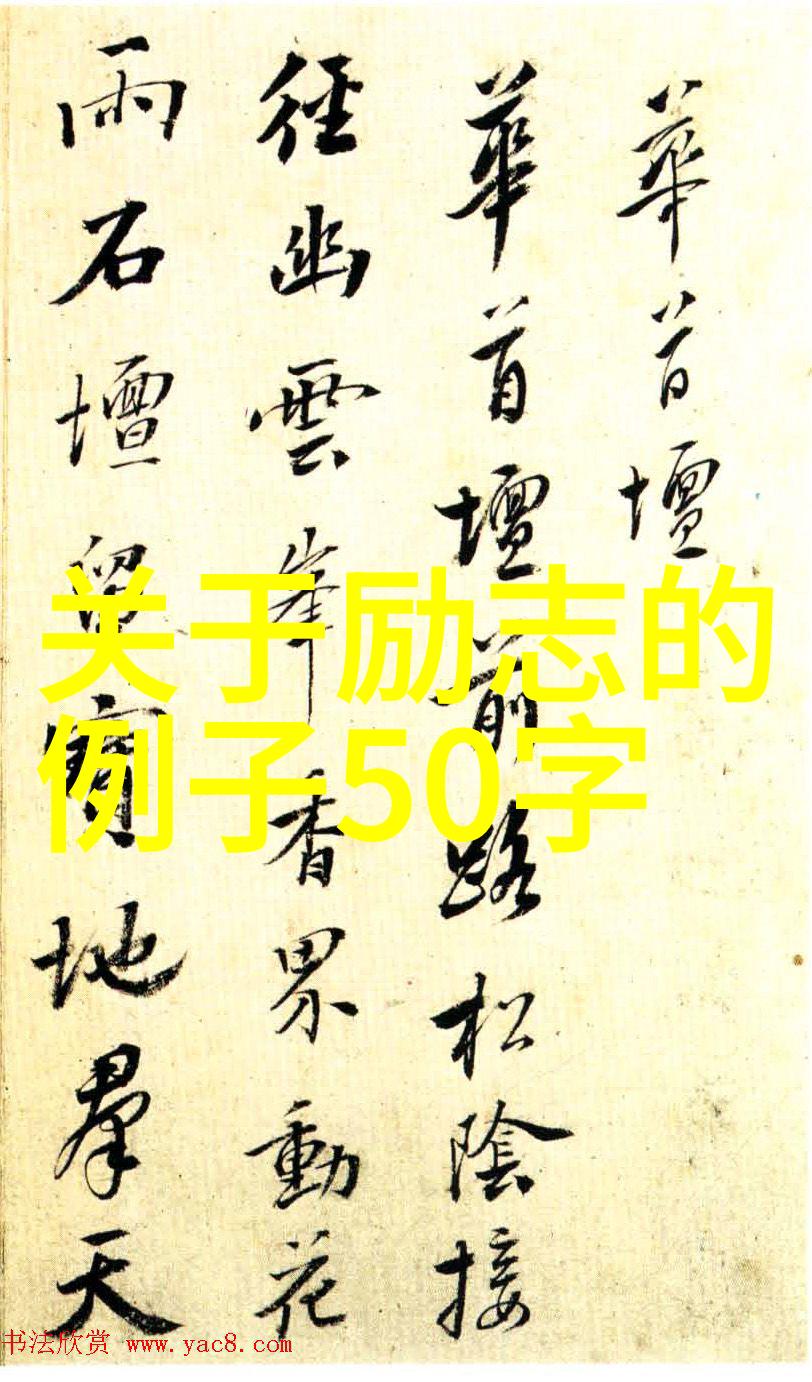 華首壇
華首壇前路松陰接
徑幽雲峯香界動花
雨石壇留寶地羣天
关于励志的
例子50字
书法欣赏 www.yac8.com